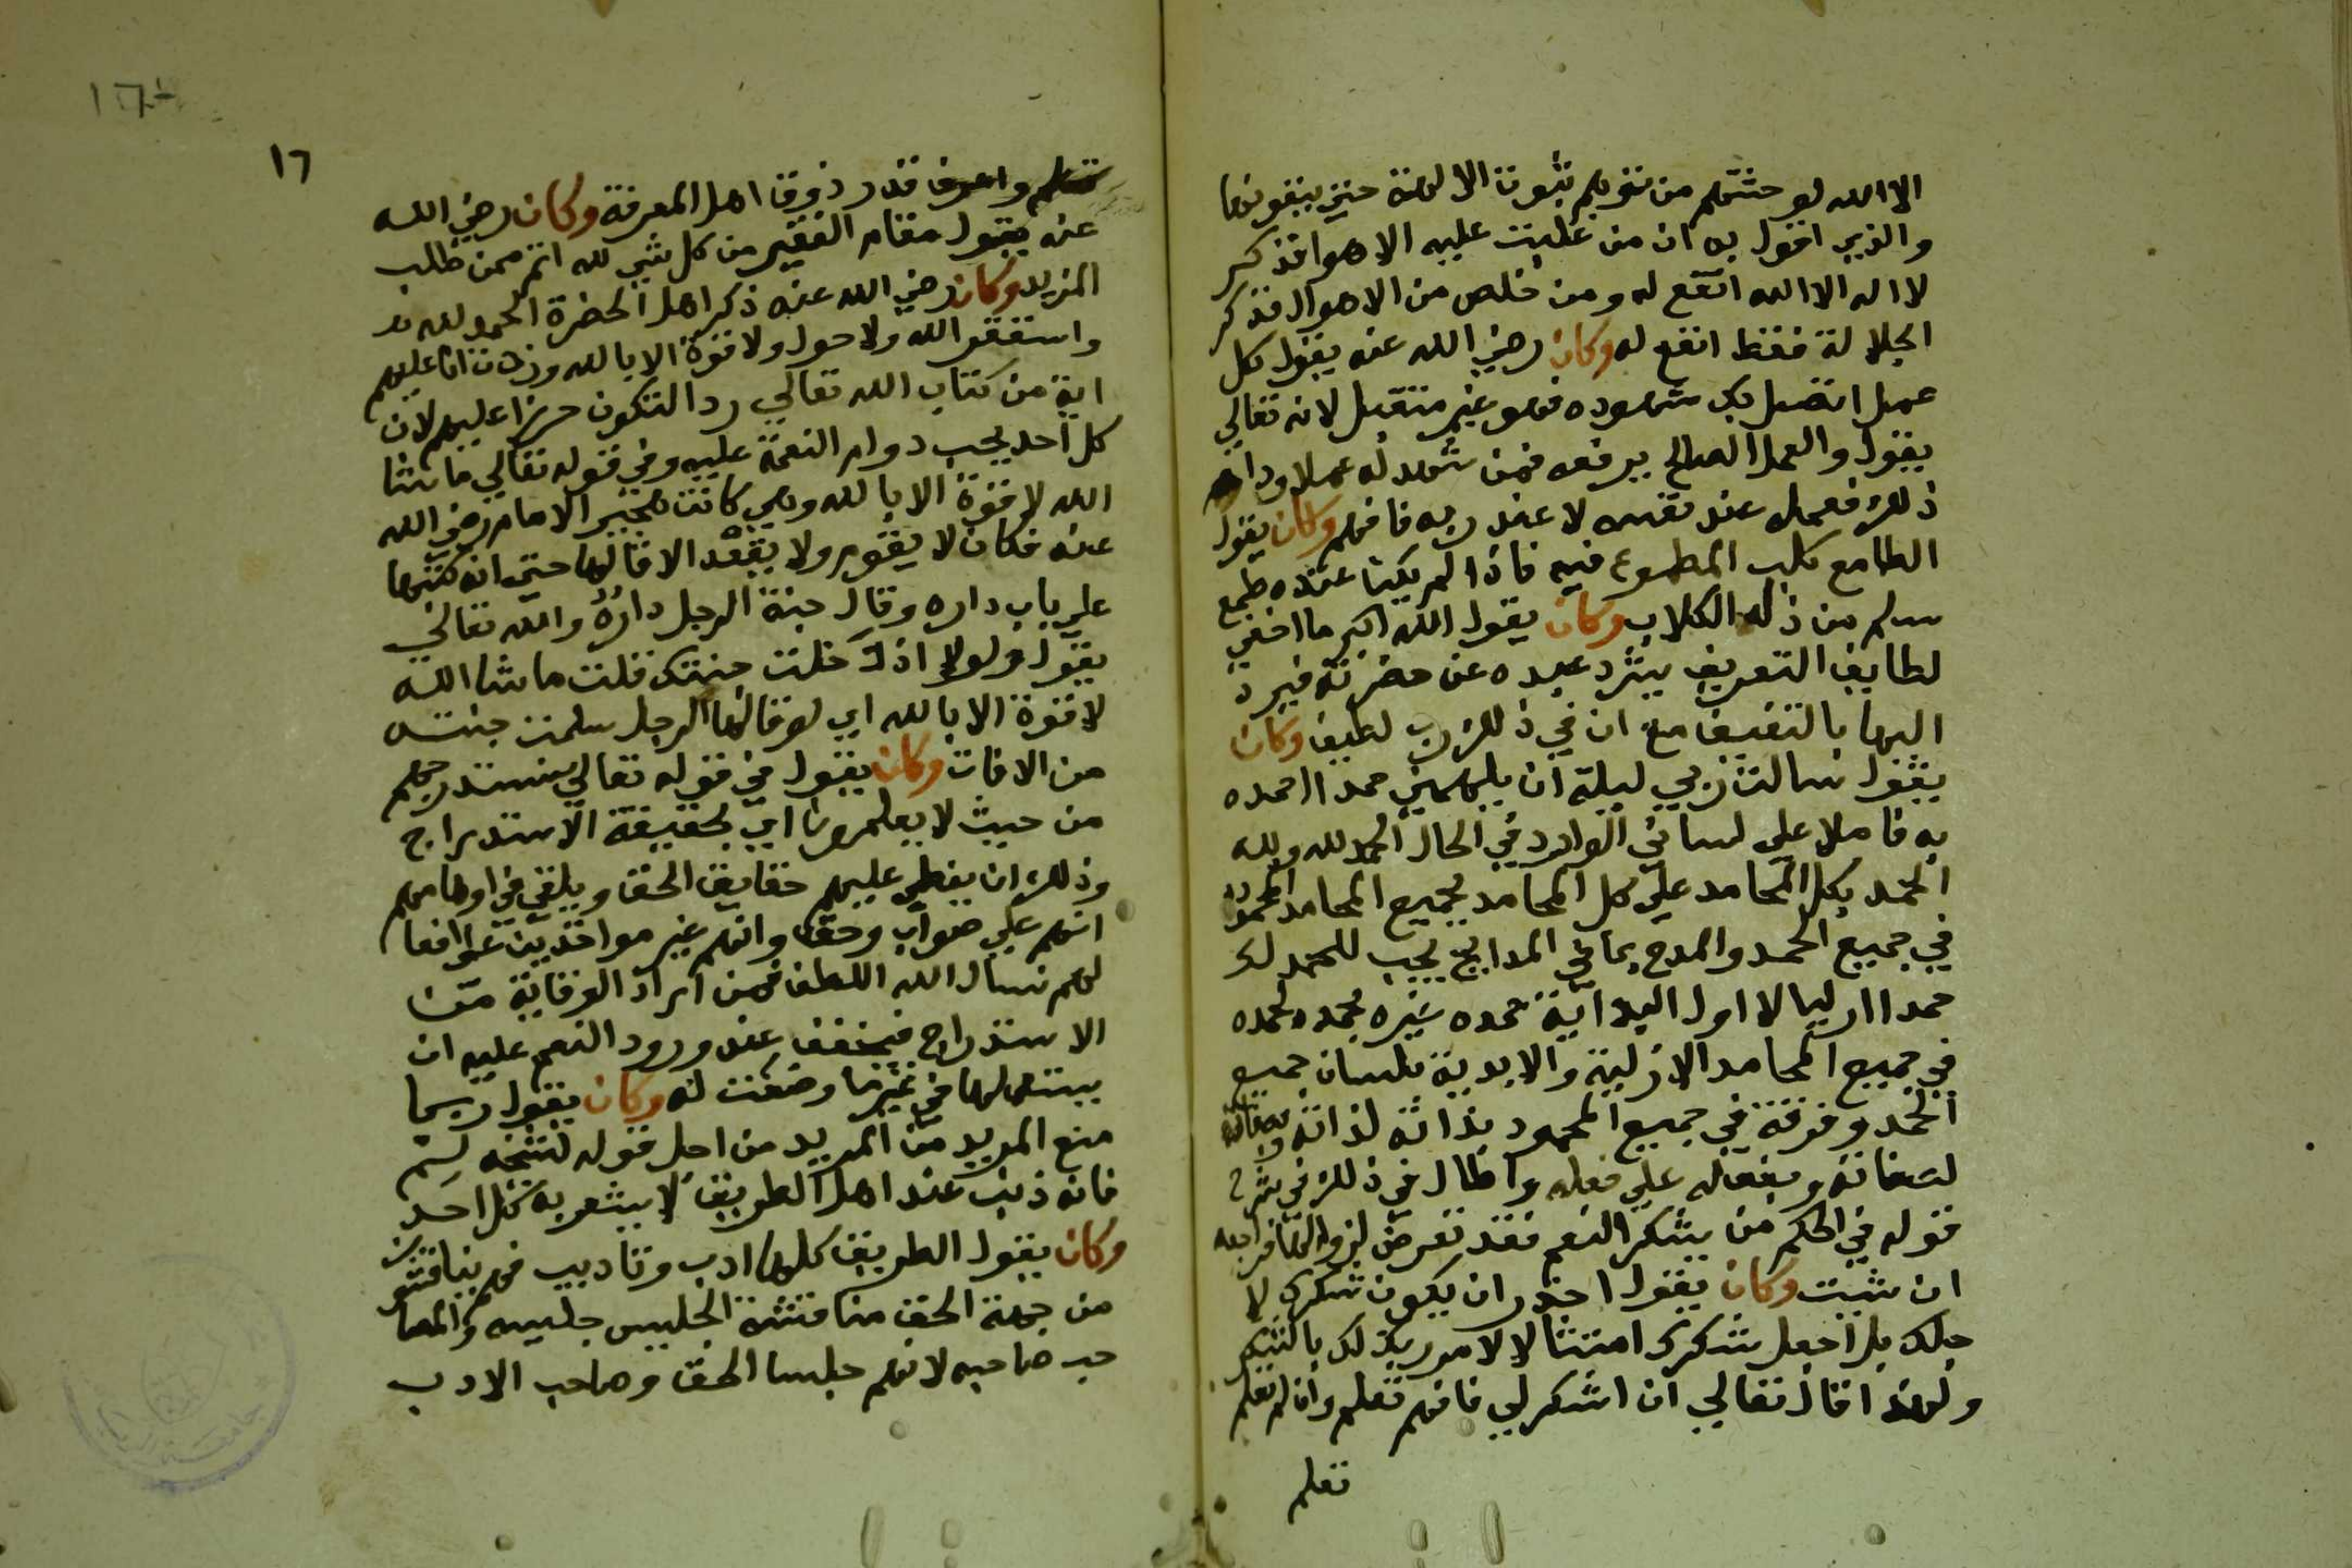 الا الله لو حثتهم من نفوهم ثبوت الالهة حتي ينفونها
والذي اقول به ان من غلبت عليه الاهوا فذكر
لا اله الا الله انفع له ومن خلص من الاهوال فذكر
الجلالة فقط انفع له وكان رضي الله عنه يقول كل
عمل اتصل بك شهوده فهو غير متقبل لانه تعالي
يقول والعمل الصالح يرفعه فمن شهد له عملا ودام
ذلك فعمله عند نفسه لا عند ربه فافهم وكان يقول
الطامع كلب المطموع فيه فاذا لم يكن عنده طمع
سلم من ذلة الكلاب وكان يقول الله اكبر ما اخفي
لطايف التعريف يشرد عبده عن حضرته فيرد
اليها بالتعنيف مع ان في ذلك رب لطيف وكان
يقول سالت ربي ليلة ان يلهمني حمدا احمده
به قاملا علي لساني الوارد في الحال الحمد لله ولله
الحمد بكل المحامد علي كل المحامد بجميع المحامد المحمودة
في جميع الحمد والمدح بما في المدايح يجب للحمد لك
حمدا ازليا لا اول البداية حمده غيره بحمد حمده
في جميع المحامد الازلية والابدية بلسان جميع
الحمد وفرقة في جميع المحمود بذاته لذاته وصفاته
لصفاته وبفعاله علي فعله واطال في ذلك في شرح
قوله في الحكم من يشكر النعم فقد تعرض لزوالها فراجعه
ان شيت وكان يقول احذر ان يكون شكرك لا
جلك بل اجعل شكرك امتثالا لامر ربك لك بالشكر
ولهذا قال تعالي ان اشكر لي فافهم تعلم وان لم تعلم
تعلم
١٦
تعلم واعرف قدر ذوق اهل المعرفة وكان رضي الله
عنه يقول مقام الفقير من كل شي لله اتم ممن طلب
المزيد وكان رضي الله عنه ذكر اهل الحضرة الحمد لله
واستغفر الله ولا حول ولا قوة الا بالله وزدت انا عليهم
اية من كتاب الله تعالي رد التكون حرزا عليهم لان
كل احد يحب دوام النعمة عليه وفي قوله تعالي ما شا
الله لا قوة الا بالله وهي كانت هجير الامام رضي الله
عنه فكان لا يقوم ولا يقعد الا قالها حتي انه كتبها
علي باب داره وقال جنة الرجل داره والله تعالي
يقول ولولا اذ دخلت جنتك قلت ما شا الله
لا قوة الا بالله اي لو قالها الرجل سلمت جنته
من الافات وكان يقول في قوله تعالي سنستدرجهم
من حيث لا يعلمون اي بحقيقة الاستدراج
وذلك ان يغطي عليهم حقايق الحق ويلقي في اوهامهم
انهم علي صواب وحق وانهم غير مواخذين علي افعا
لهم نسال الله اللطف فمن اراد الوقاية من
الاستدراج فيخفف عند ورود النعم عليه ان
يستعملها في غير ما وضعت له وكان يقول ربما
منع المريد من المزيد من اجل قوله لشيخه لم
فانه ذنب عند اهل الطريق لا يشعر به كل احد
وكان يقول الطريق كلها ادب وتاديب فهم يناقشون
من جهة الحق مناقشة الجليس جليسه والصا
حب صاحبه لانهم جلسا الحق وصاحب الادب